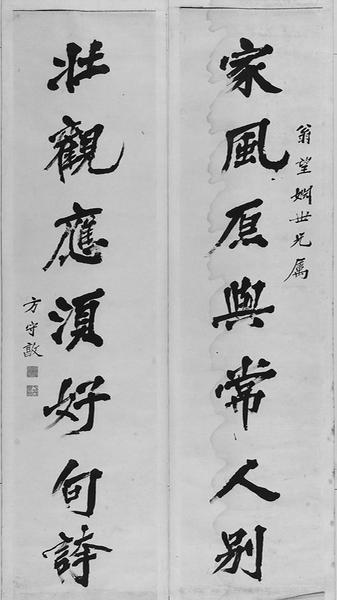 翁望婣世兄属
家風原與常人別
壯觀應須好句誇
方守敦